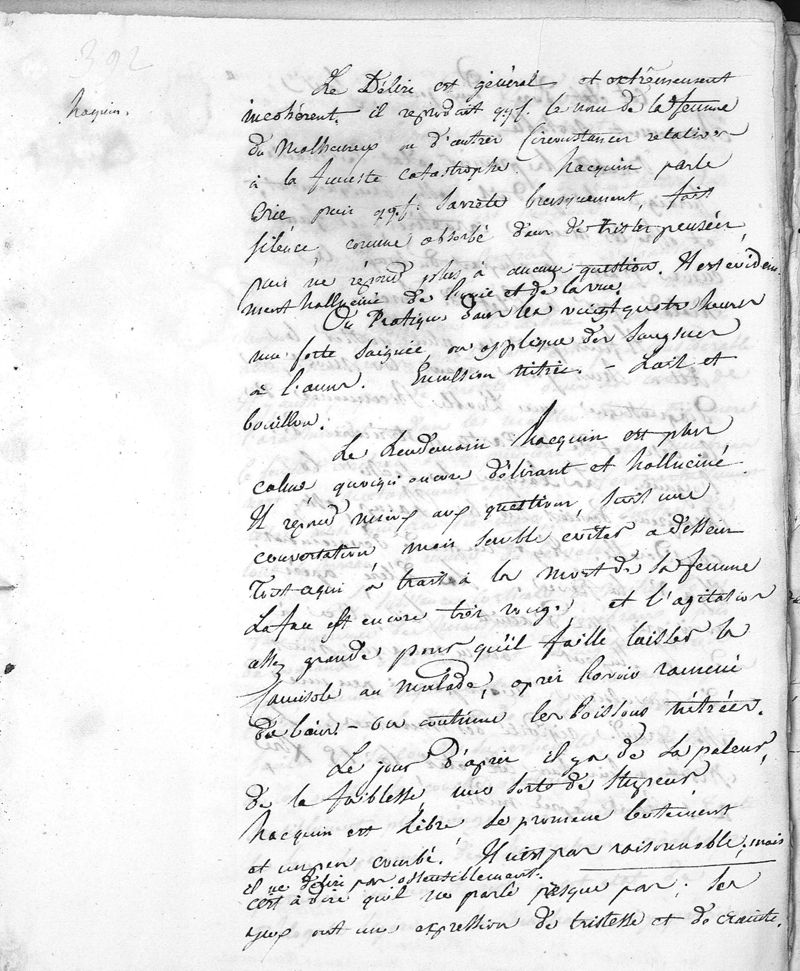 392
hacquin.
Le Délire est général et extrêmement
incohérent. il reproduit qqf. le nom de la femme
du Malheureux ou d'autres Circonstances relatives
à la funeste catastrophe. hacquin parle
Crie puis qqf. sarrête brusquement, fait
silence comme absorbé dans de tristes pensées,
puis ne répond plus à aucune question. Il est évidem
ment halluciné de l'ouie et de la vue.
On Pratique dans les vingt quatre heures
une forte saignée, on applique des sangsues
à l'anus. Emulsion nitrée. - Lait et
bouillon.
Le Lendemain hacquin est plus
calme quoiqu'encore délirant et halluciné.
Il répond mieux aux questions, suit une
conversation mais semble eviter a dessein
Tout aqui à trait à la mort de sa femme
La face est encore très rouge, et l'agitation
assez grande pour qu'il faille laisser la
Camisole au Malade, après l'avoir ramené
du bain. - on continue les boissons nitrées.
Le jour d'après il y a de la paleur,
de la faiblesse, une sorte de stupeur,
hacquin est libre se promene lentement
et un peu courbé. Il n'est pas raisonnable, mais
il ne délire pas ostensiblement.
c'est à dire qu'il ne parle presque pas; ses
yeux ont une expression de tristesse et de crainte.